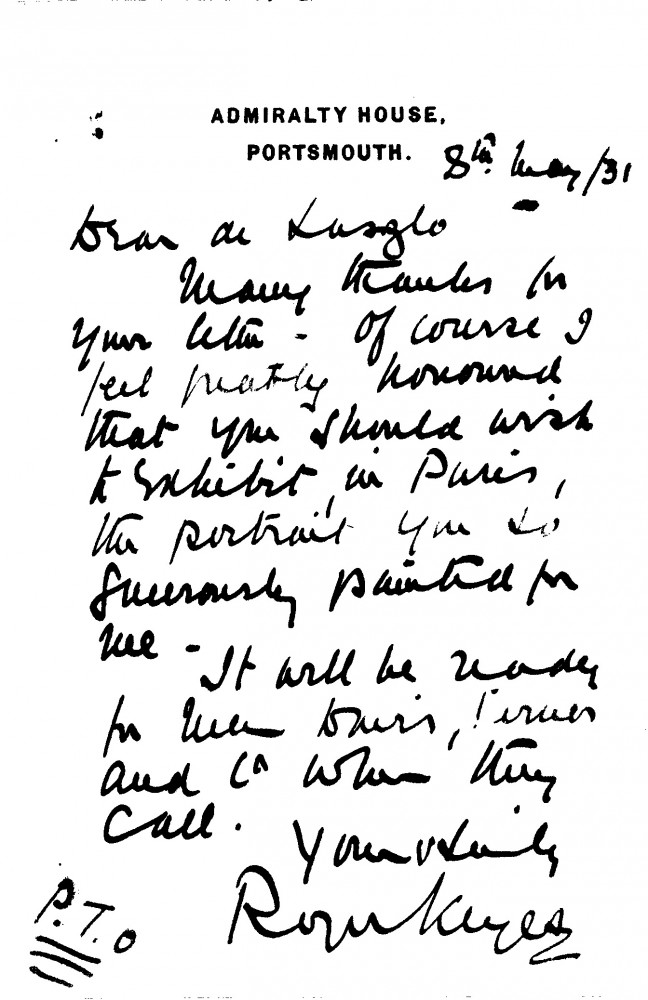 ADMIRALTY HOUSE,
PORTSMOUTH.
8th May/31
Dear de Laszlo
Many thanks for
your letter - Of course I
feel greatly honoured
that you should wish
to Exhibit, in Paris,
the portrait you so
Generously painted for
me -
It will be ready
for Turner
and Co when they
Call.
Yours
Roger Keyes
P.T.O